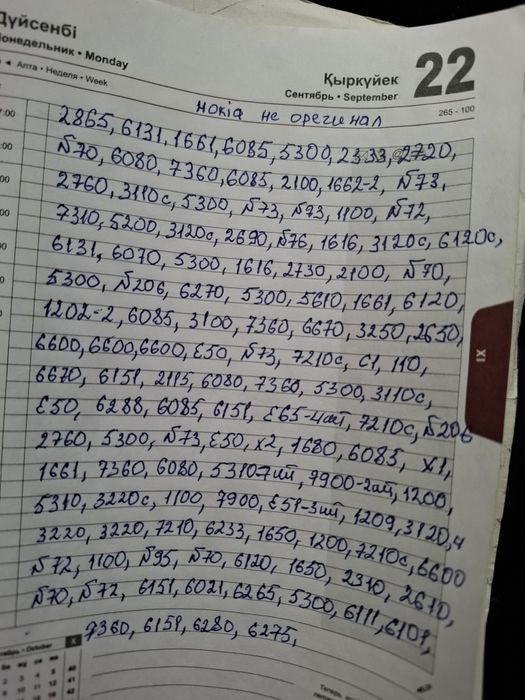 Дүйсенбі
Понедельник • Monday
Алта • Неделя • Week
Қыркүйек
Сентябрь • September
22
265 - 100
нокіа не орегинал
2865, 6131, 1661, 6085, 5300, 2333, 2720,
N70, 6080, 7360, 6085, 2100, 1662-2, N73,
2760, 3110c, 5300, N73, N73, 1100, N72,
7310, 5200, 3120c, 2690, N76, 1616, 3120c, 6120c,
6131, 6070, 5300, 1616, 2730, 2100, N70,
5300, N206, 6270, 5300, 5610, 1661, 6120,
1202-2, 6085, 3100, 7360, 6670, 3250, 2650,
6600, 6600, 6600, E50, N73, 7210c, C1, 110,
6670, 6151, 2115, 6080, 7360, 5300, 3110c,
E50, 6288, 6085, 6151, E65-4шт, 7210c, N206
2760, 5300, N73, E50, x2, 1680, 6085, X1,
1661, 7360, 6080, 5310-7шт, 7900-2шт, 1200,
5310, 3220c, 1100, 7900, E51-3шт, 1209, 3120, 4
3220, 3220, 7210, 6233, 1650, 1200, 7210c, 6600
N72, 1100, N95, N70, 6120, 1650, 2310, 2610,
N70, N72, 6151, 6021, 6265, 5300, 6111, 6101,
7360, 6151, 6280, 6275,
XI